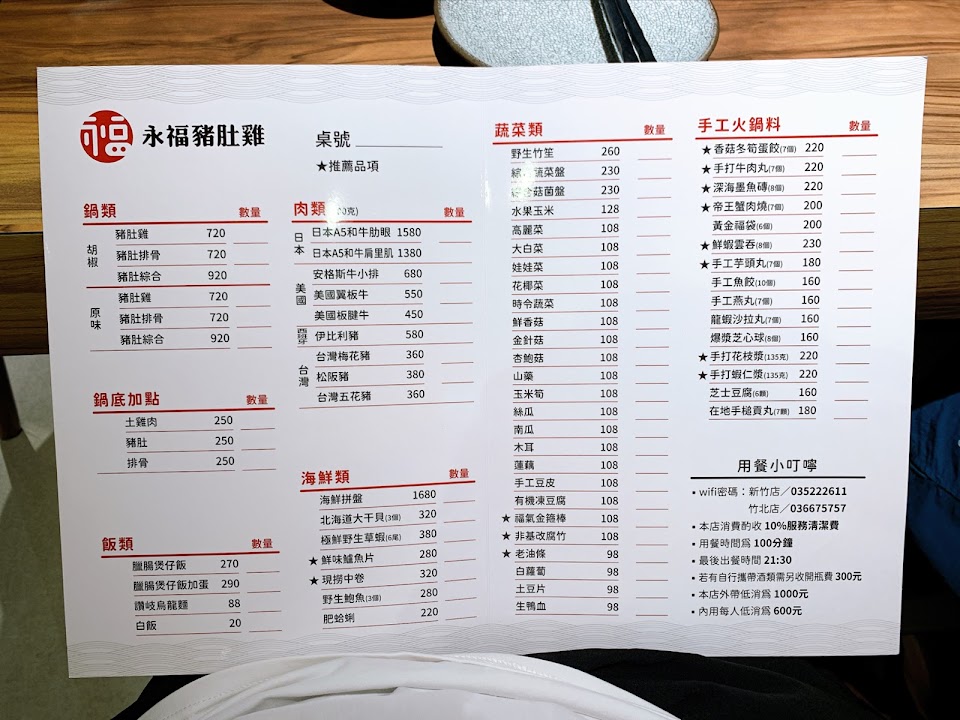 永福豬肚雞
桌號
★推薦品項
鍋類 數量
胡椒
豬肚雞 720
豬肚排骨 720
豬肚綜合 920
原味
豬肚雞 720
豬肚排骨 720
豬肚綜合 920
鍋底加點 數量
土雞肉 250
豬肚 250
排骨 250
飯類 數量
臘腸煲仔飯 270
臘腸煲仔飯加蛋 290
讚岐烏龍麵 88
白飯 20
肉類 數量
日本
日本A5和牛肋眼 1580
日本A5和牛肩里肌 1380
美國
安格斯牛小排 680
美國翼板牛 550
美國板腱牛 450
伊比利豬 580
台灣
台灣梅花豬 360
松阪豬 380
台灣五花豬 360
海鮮類 數量
海鮮拼盤 1680
北海道大干貝(3個) 320
極鮮野生草蝦(6尾) 380
★鮮味鱸魚片 280
★現撈中卷 320
野生鮑魚(3個) 280
肥蛤蜊 220
蔬菜類 數量
野生竹笙 260
綜合蔬菜盤 230
綜合菇菌盤 230
水果玉米 128
高麗菜 108
大白菜 108
娃娃菜 108
花椰菜 108
時令蔬菜 108
鮮香菇 108
金針菇 108
杏鮑菇 108
山藥 108
玉米筍 108
絲瓜 108
南瓜 108
木耳 108
蓮藕 108
手工豆皮 108
有機凍豆腐 108
★福氣金箍棒 108
★非基改腐竹 108
★老油條 98
白蘿蔔 98
土豆片 98
生鴨血 98
手工火鍋料 數量
★香菇冬筍蛋餃(7個) 220
★手打牛肉丸(7個) 220
★深海墨魚磚(8個) 220
★帝王蟹肉燒(7個) 200
黃金福袋(6個) 200
★鮮蝦雲吞(8個) 230
★手工芋頭丸(7個) 180
手工魚餃(10個) 160
手工燕丸(7個) 160
龍蝦沙拉丸(7個) 160
爆漿芝心球(8個) 160
★手打花枝漿(135克) 220
★手打蝦仁漿(135克) 220
芝士豆腐(6顆) 160
在地手槌貢丸(7顆) 180
用餐小叮嚀
▪ wifi密碼：新竹店／035222611
竹北店／036675757
▪ 本店消費酌收 10%服務清潔費
▪ 用餐時間為 100分鐘
▪ 最後出餐時間 21:30
▪ 若有自行攜帶酒類需另收開瓶費 300元
▪ 本店外帶低消為 1000元
▪ 內用每人低消為 600元